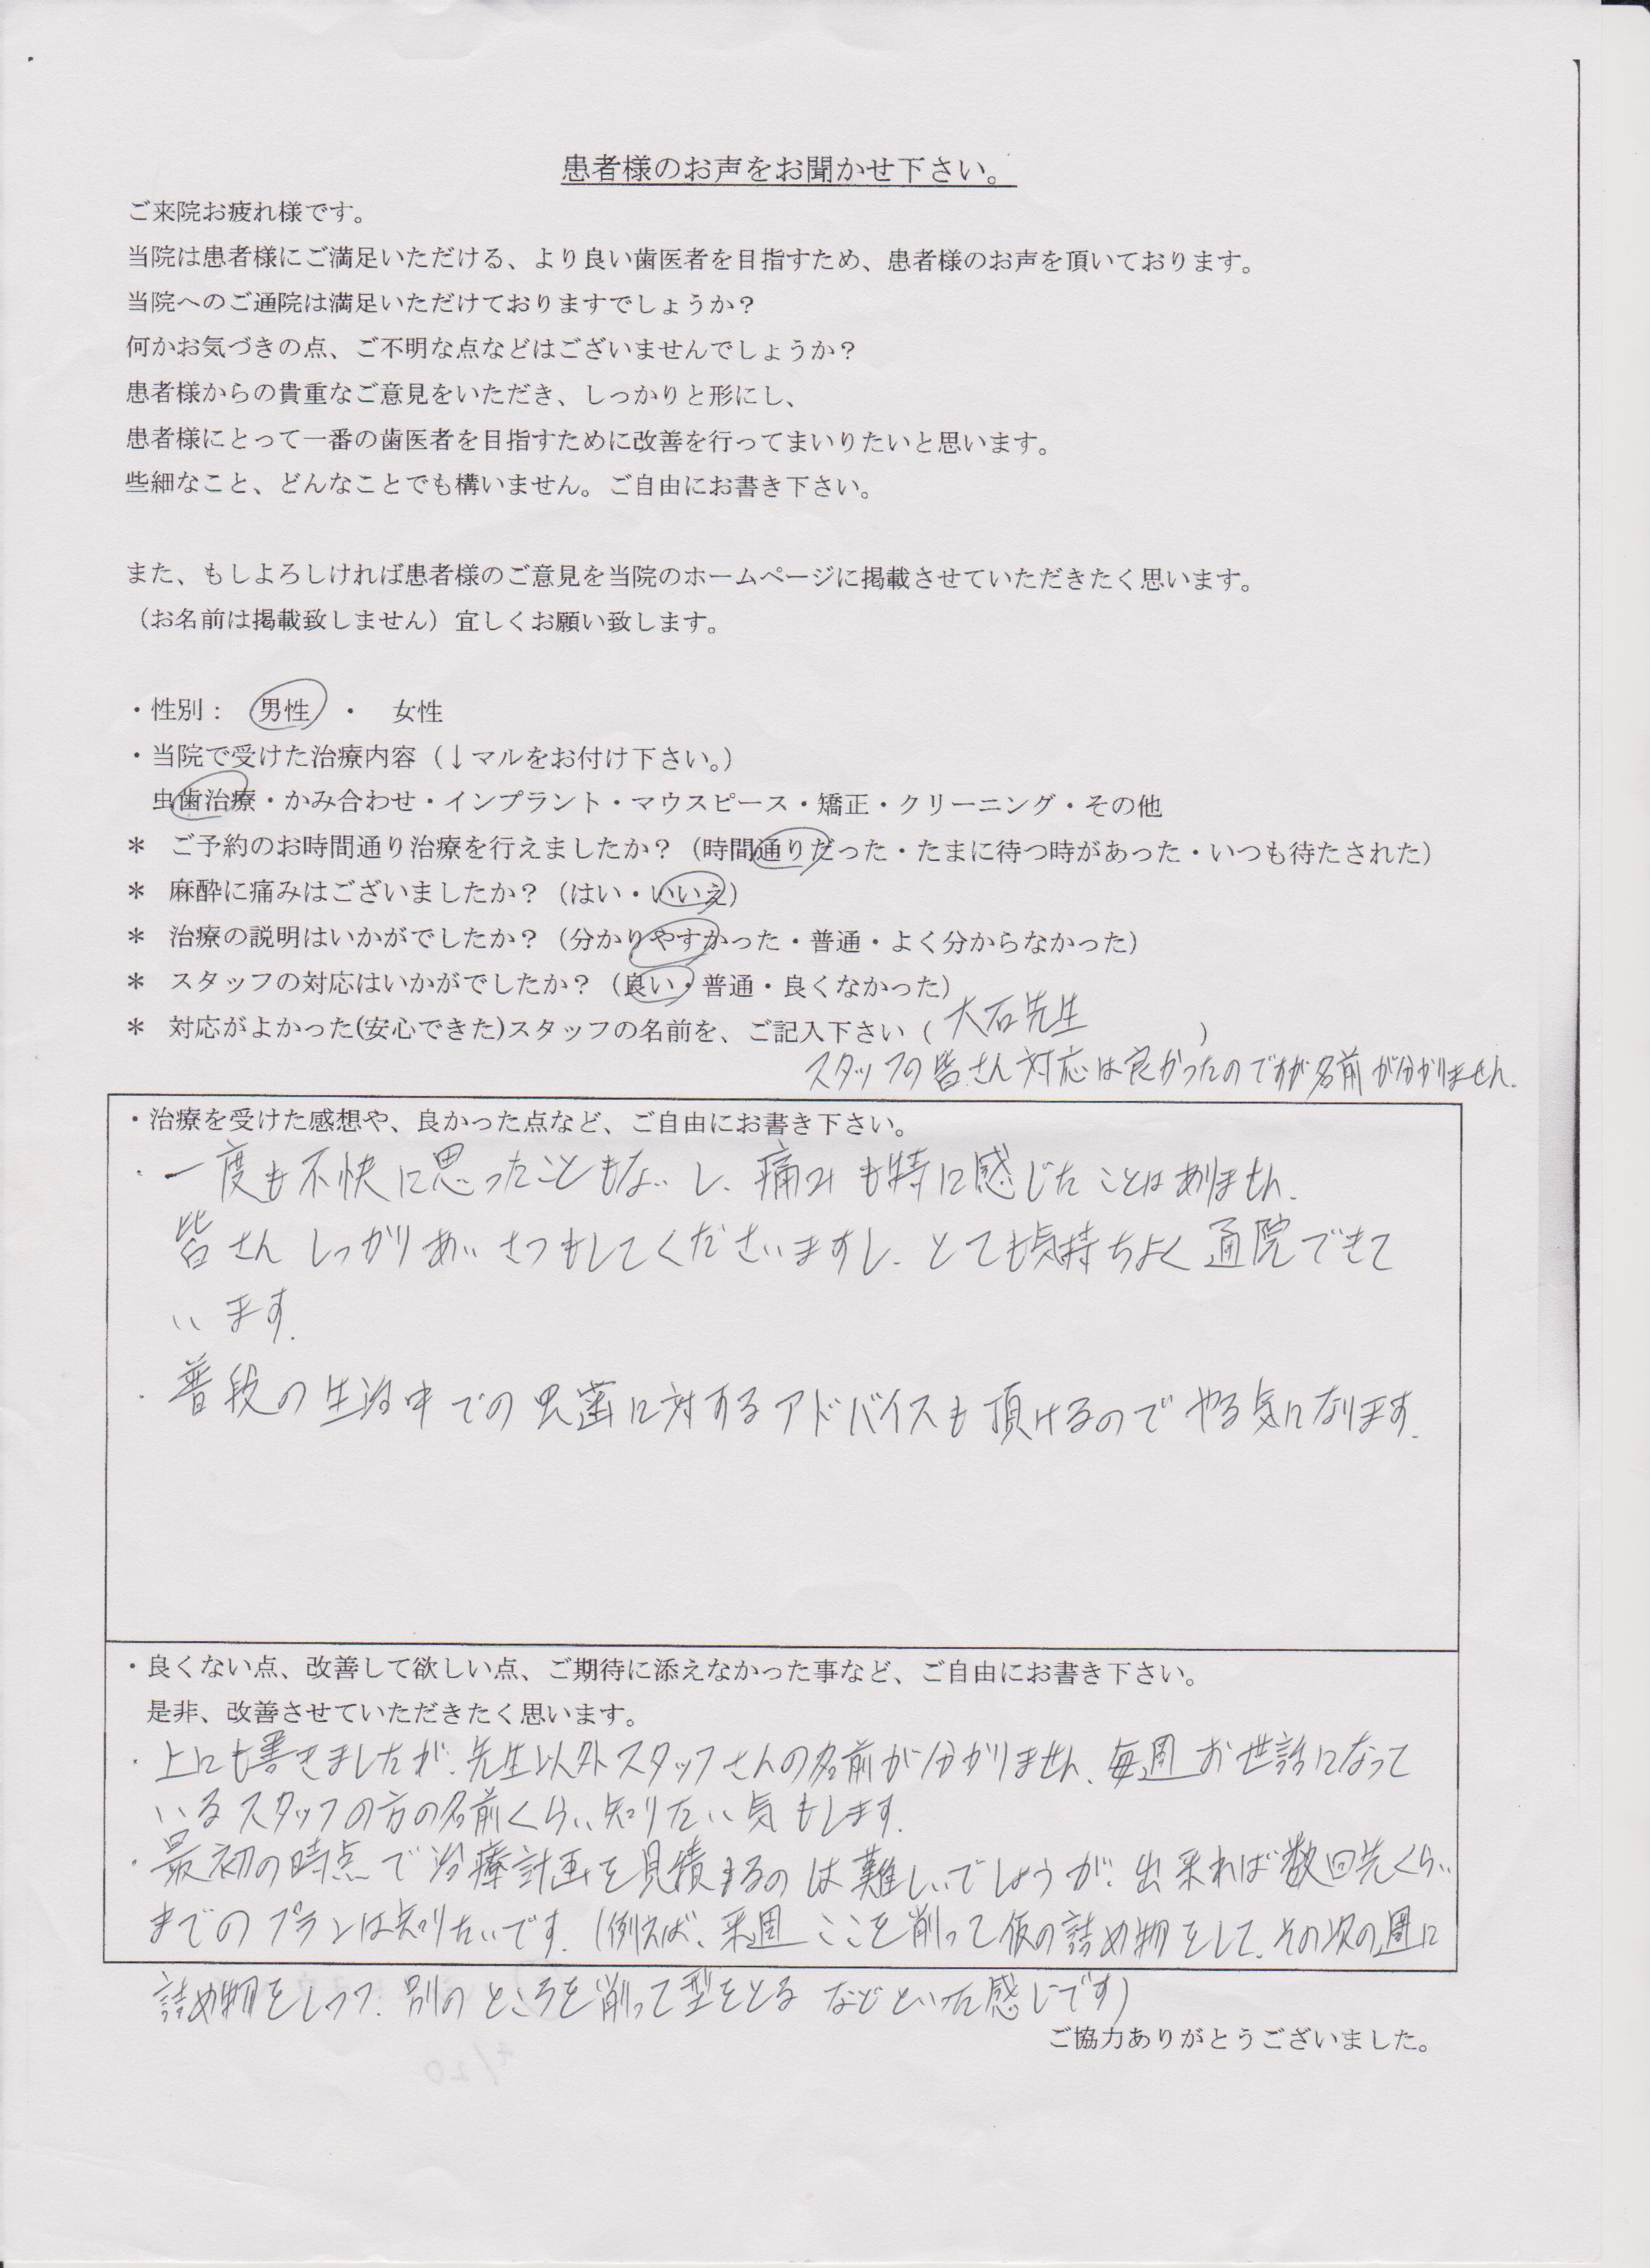 患者様のお声をお聞かせ下さい。
ご来院お疲れ様です。
当院は患者様にご満足いただける、より良い歯医者を目指すため、患者様のお声を頂いております。
当院へのご通院は満足いただけておりますでしょうか？
何かお気づきの点、ご不明な点などはございませんでしょうか？
患者様からの貴重なご意見をいただき、しっかりと形にし、
患者様にとって一番の歯医者を目指すために改善を行ってまいりたいと思います。
些細なこと、どんなことでも構いません。ご自由にお書き下さい。
また、もしよろしければ患者様のご意見を当院のホームページに掲載させていただきたく思います。
（お名前は掲載致しません）宜しくお願い致します。
・性別： 男性 ・ 女性
・当院で受けた治療内容（↓マルをお付け下さい。）
虫歯治療・かみ合わせ・インプラント・マウスピース・矯正・クリーニング・その他
＊ ご予約のお時間通り治療を行えましたか？（時間通りだった・たまに待つ時があった・いつも待たされた）
＊ 麻酔に痛みはございましたか？（はい・いいえ）
＊ 治療の説明はいかがでしたか？（分かりやすかった・普通・よく分からなかった）
＊ スタッフの対応はいかがでしたか？（良い・普通・良くなかった）
＊ 対応がよかった(安心できた)スタッフの名前を、ご記入下さい（ 大石先生 ）
スタッフの皆さん対応は良かったのですが名前が分かりません.
・治療を受けた感想や、良かった点など、ご自由にお書き下さい。
・一度も不快に思ったこともないし、痛みも特に感じたことはありません.
皆さんしっかりあいさつもしてくださいますし、とても気持ちよく通院できて
います.
・普段の生活中での虫歯に対するアドバイスも頂けるのでやる気になります.
・良くない点、改善して欲しい点、ご期待に添えなかった事など、ご自由にお書き下さい。
是非、改善させていただきたく思います。
・上にも書きましたが、先生以外スタッフさんの名前が分かりません、毎週お世話になって
いるスタッフの方の名前くらい知りたい気もします.
・最初の時点で治療計画を見積まるのは難しいでしょうが、出来れば数回先くらい
までのプランは知りたいです.（例えば、来週ここを削って仮の詰め物をして、その次の週に
詰め物をしつつ、別のところを削って型をとるなどといった感じです）
ご協力ありがとうございました。